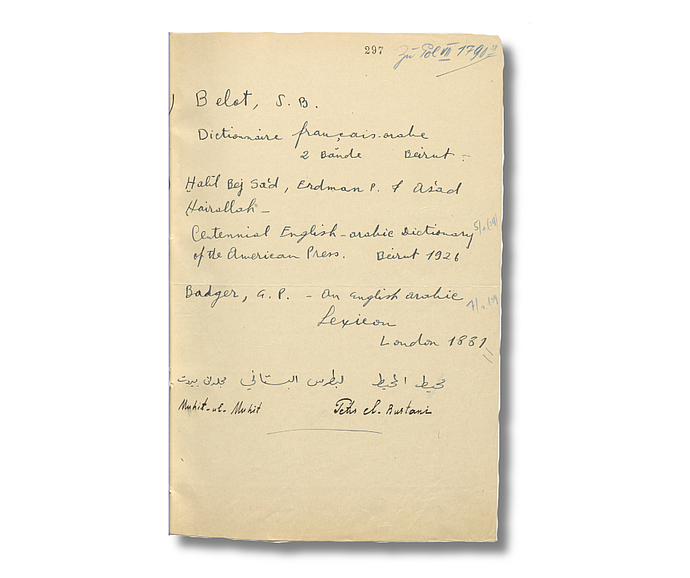 297 Zu Pol VII 1790
Belot, S. B.
Dictionnaire français-arabe
2 Bände Beirut :
Halil Bej Sa'd, Erdman P. & As'ad
Hairallah –
Centennial English-arabic Dictionary
of the American Press. Beirut 1926
Badger, G. P. – An English arabic
Lexicon
London 1881
محيط المحيط لبطرس البستاني مجلدان بيروت
Muhit-ul-Muhit Petrs el-Bustani